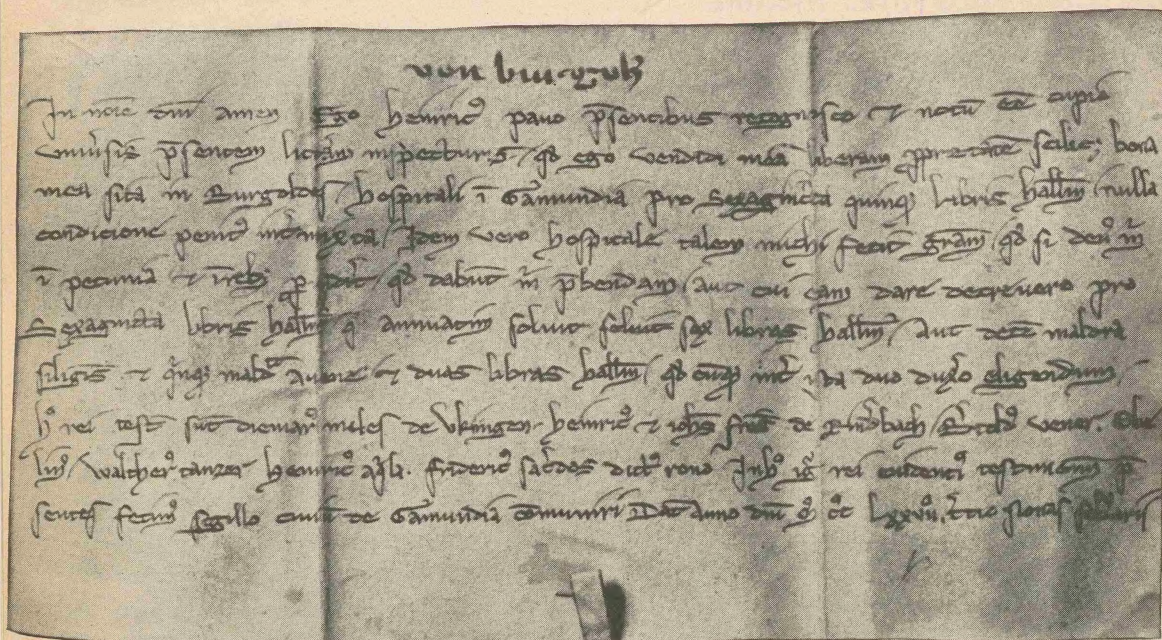 von burgolz
In noie dni amen Ego heinric pavo psentibus recognosco et notu ee cupio
univsis psentem litam inspecturis / qd ego vendidi mea liberam ppetate scilic; bona
mea sita in Burgoldes / hospitali i Gamundia pro Sexaginta quinq libris hallm / nulla
condicione penit intmixta / Idem vero hospitale talem michi fecit gram / qd si den m
i pecunia et reb; p / qd dabut m pbendam / aut cui eam dare decrevero pro
Sexaginta libris hallm q annuatim solvit solvit sex libras hallm / aut dece maldra
siliginis et qinq maldra avene et duas libras hallm / qd cuq int ista duo duxo eligendum /
h rei test sut diemar miles de Ukingen heinric et iohs fres de Rinbach / Btold vener.
lin / walther tanzer heinric aqla. frideric sacdos dict rono In h ig rei evidenti testimoniu p
sentes fecim sigillo civiu de Gamundia comuniri Dat Anno dni m cc lxxvii, tcio nonas